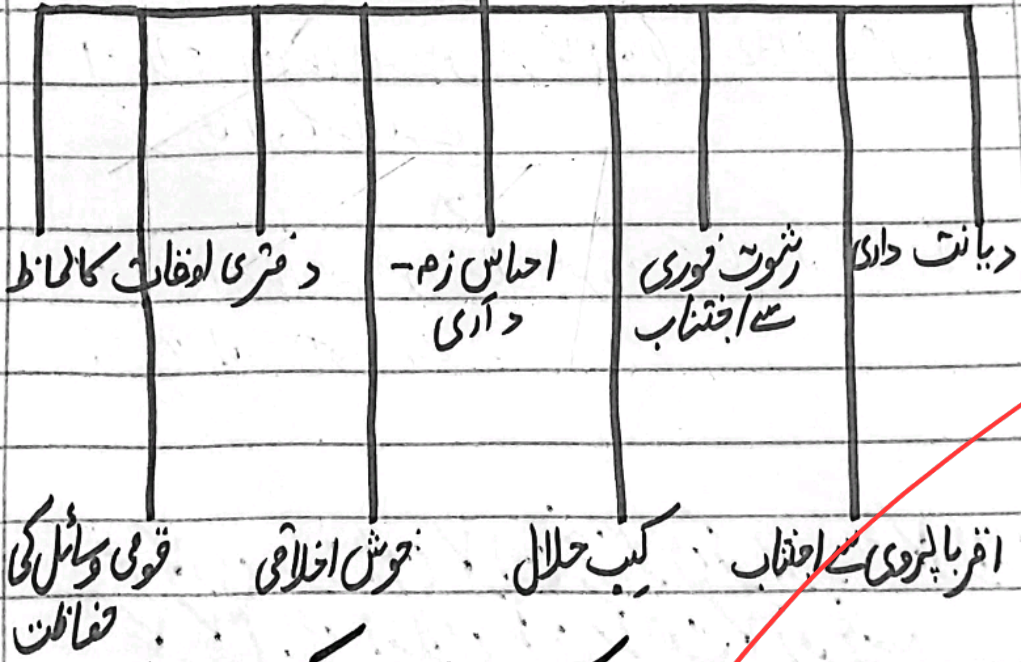 دیانت داری
رشوت خوری
سے اجتناب
احساس ذمہ-
داری
دفتری اوقات کا لحاظ
اقربا پروری سے اجتناب
کسب حلال
خوش اخلاقی
قومی وسائل کی
حفاظت